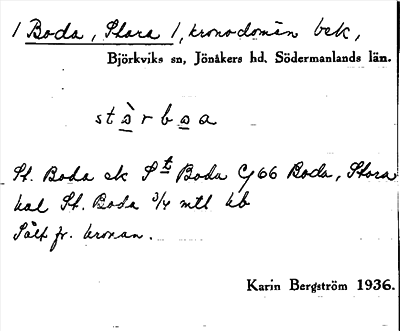 1 Boda, Stora 1, kronodomän bek,
Björkviks sn, Jönåkers hd, Södermanlands län.
st à r b a a
St. Boda ek St Boda Gj66 Boda, Stora
kal St. Boda 3/4 mtl kb
Sålt fr. kronan.
Karin Bergström 1936.